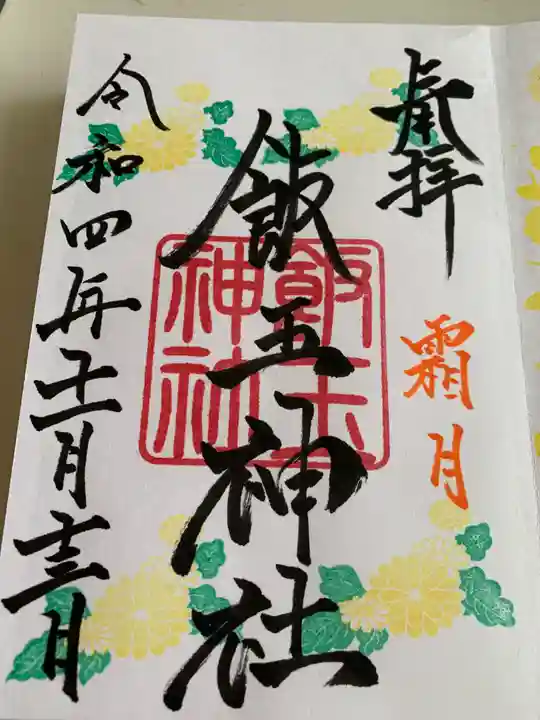 奉拝
霜月
飯玉神社
飯玉
神社
令和四年十一月十三日